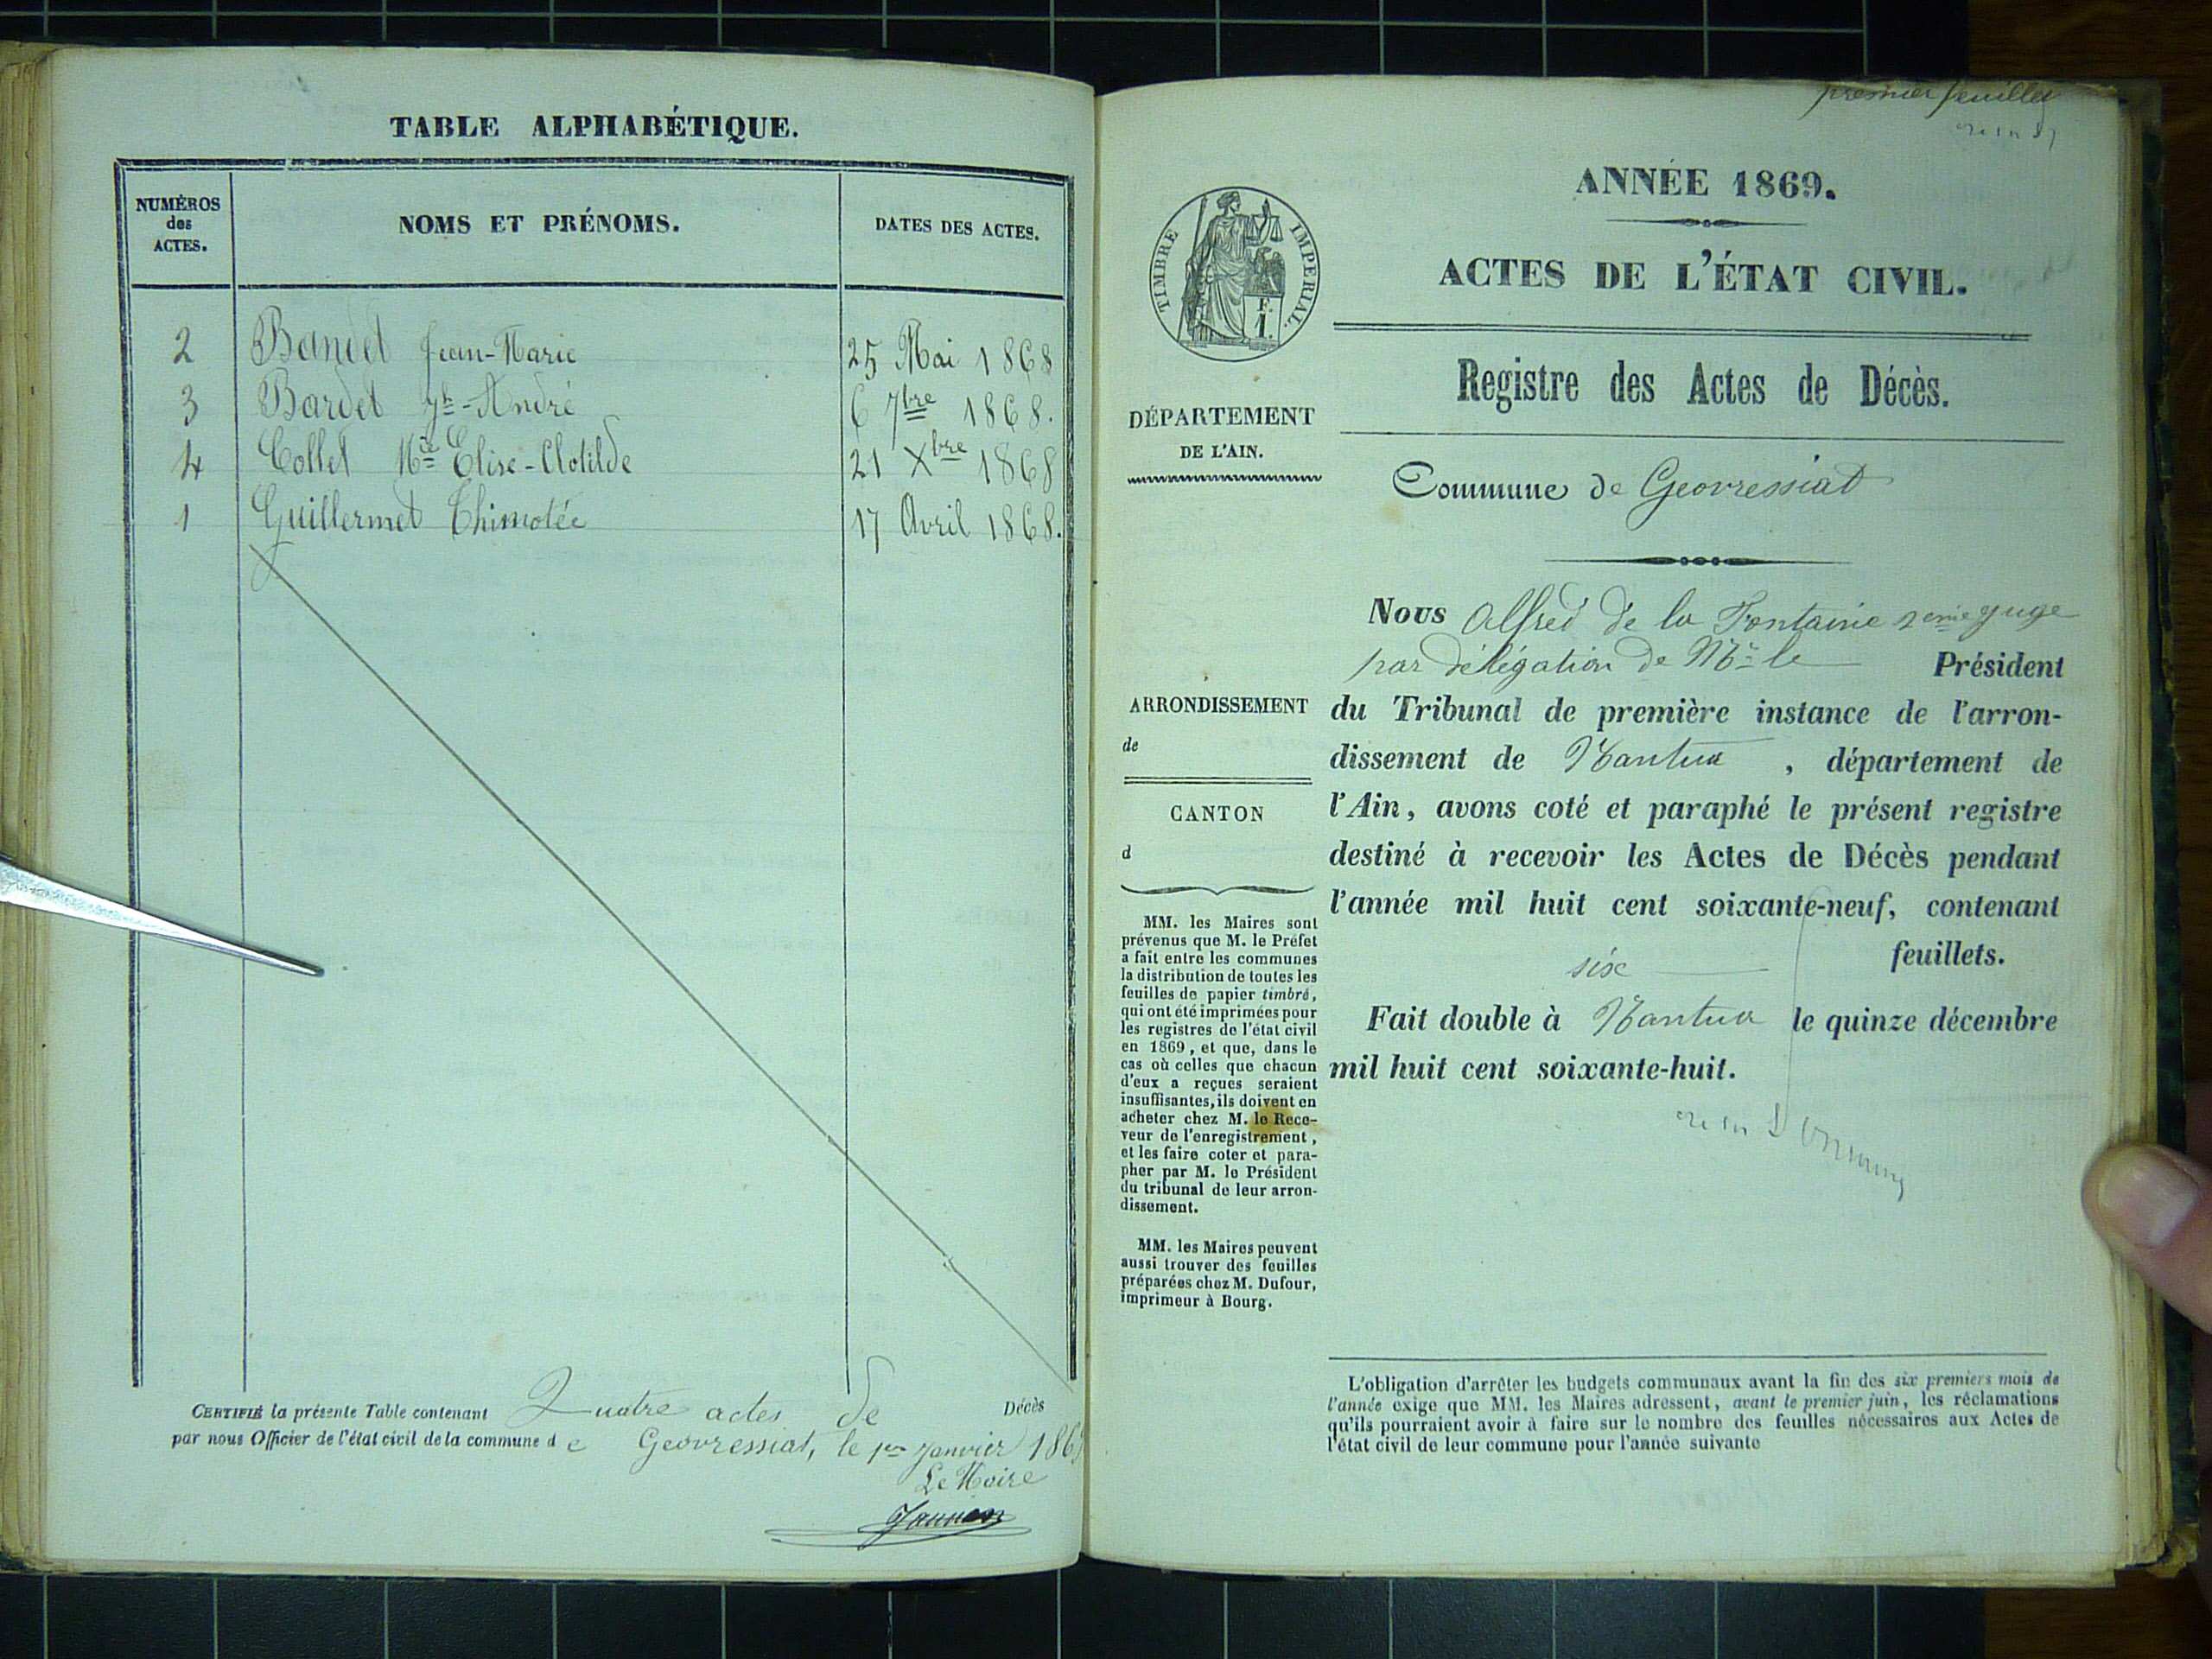 TABLE ALPHABÉTIQUE.
NUMÉROS
des
ACTES.
NOMS ET PRÉNOMS.
DATES DES ACTES.
2 Bandet Jean-Marie 25 Mai 1868
3 Bardet Jh-André 6 7bre 1868.
4 Collet Mie Elise-Clotilde 21 Xbre 1868
1 Guillermet Thimotée 17 Avril 1868.
CERTIFIÉ la présente Table contenant Quatre actes de Décès
par nous Officier de l'état civil de la commune de Geovressiat, le 1er Janvier 186
Le Maire
premier feuillet
ANNÉE 1869.
ACTES DE L'ÉTAT CIVIL.
TIMBRE IMPERIAL.
F.
1.
Registre des Actes de Décès.
DÉPARTEMENT
DE L'AIN.
Commune de Geovressiat
ARRONDISSEMENT
de
CANTON
d
MM. les Maires sont
prévenus que M. le Préfet
a fait entre les communes
la distribution de toutes les
feuilles de papier timbré,
qui ont été imprimées pour
les registres de l'état civil
en 1869, et que, dans le
cas où celles que chacun
d'eux a reçues seraient
insuffisantes, ils doivent en
acheter chez M. le Rece-
veur de l'enregistrement,
et les faire coter et para-
pher par M. le Président
du tribunal de leur arron-
dissement.
MM. les Maires peuvent
aussi trouver des feuilles
préparées chez M. Dufour,
imprimeur à Bourg.
Nous Alfred de la Fontaine 2eme juge
par délégation de Mr le Président
du Tribunal de première instance de l'arron-
dissement de Nantua, département de
l'Ain, avons coté et paraphé le présent registre
destiné à recevoir les Actes de Décès pendant
l'année mil huit cent soixante-neuf, contenant
six feuillets.
Fait double à Nantua le quinze décembre
mil huit cent soixante-huit.
L'obligation d'arrêter les budgets communaux avant la fin des six premiers mois de
l'année exige que MM. les Maires adressent, avant le premier juin, les réclamations
qu'ils pourraient avoir à faire sur le nombre des feuilles nécessaires aux Actes de
l'état civil de leur commune pour l'année suivante